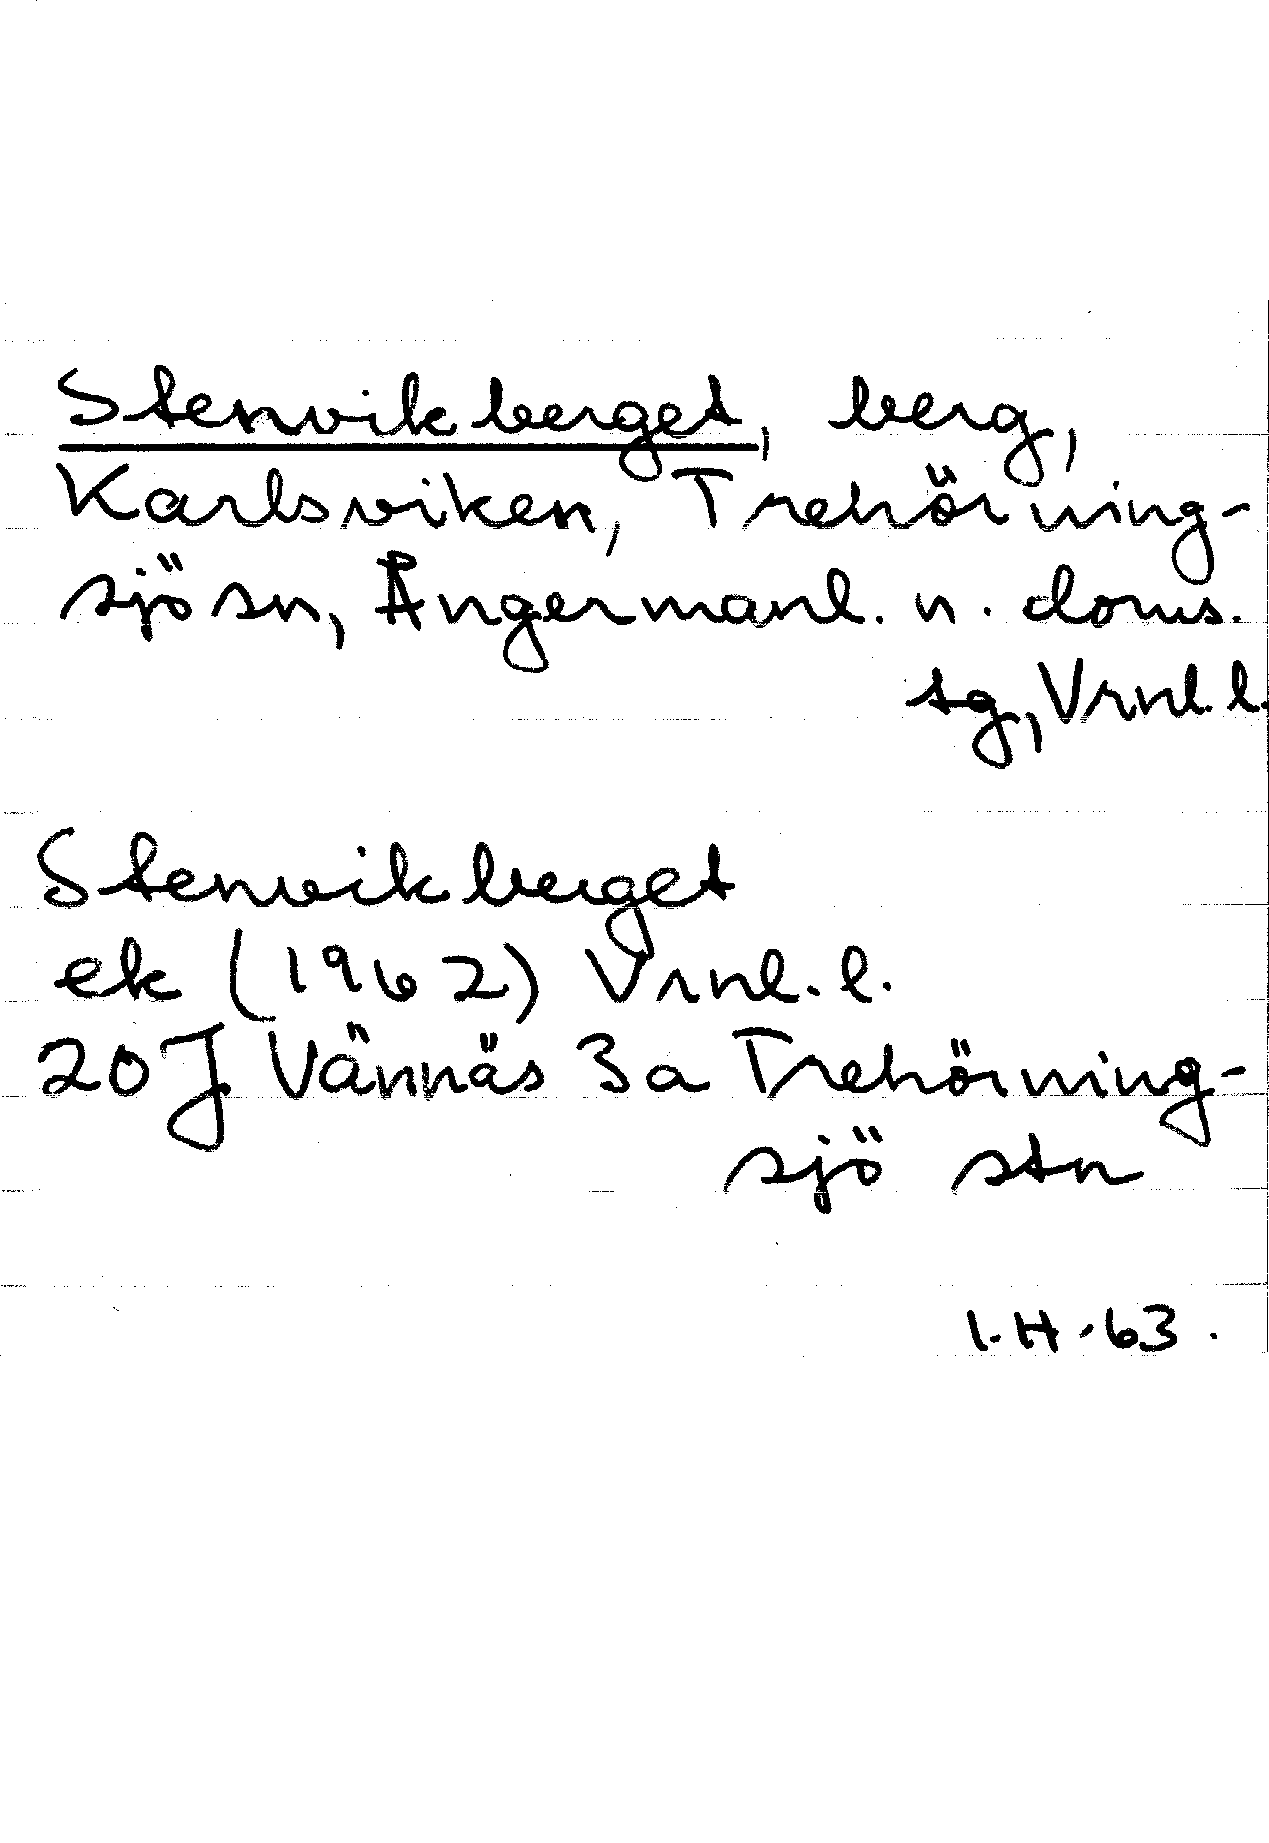 Stenvikberget, berg,
Karlsviken, Trehörning-
sjö sn, Ångermanl. n. doms.
sg, Vrnl. l.
Stenvikberget
ek (1962) Vrnl. l.
20J Vännäs 3a Trehörning-
sjö stn
I.H.63.